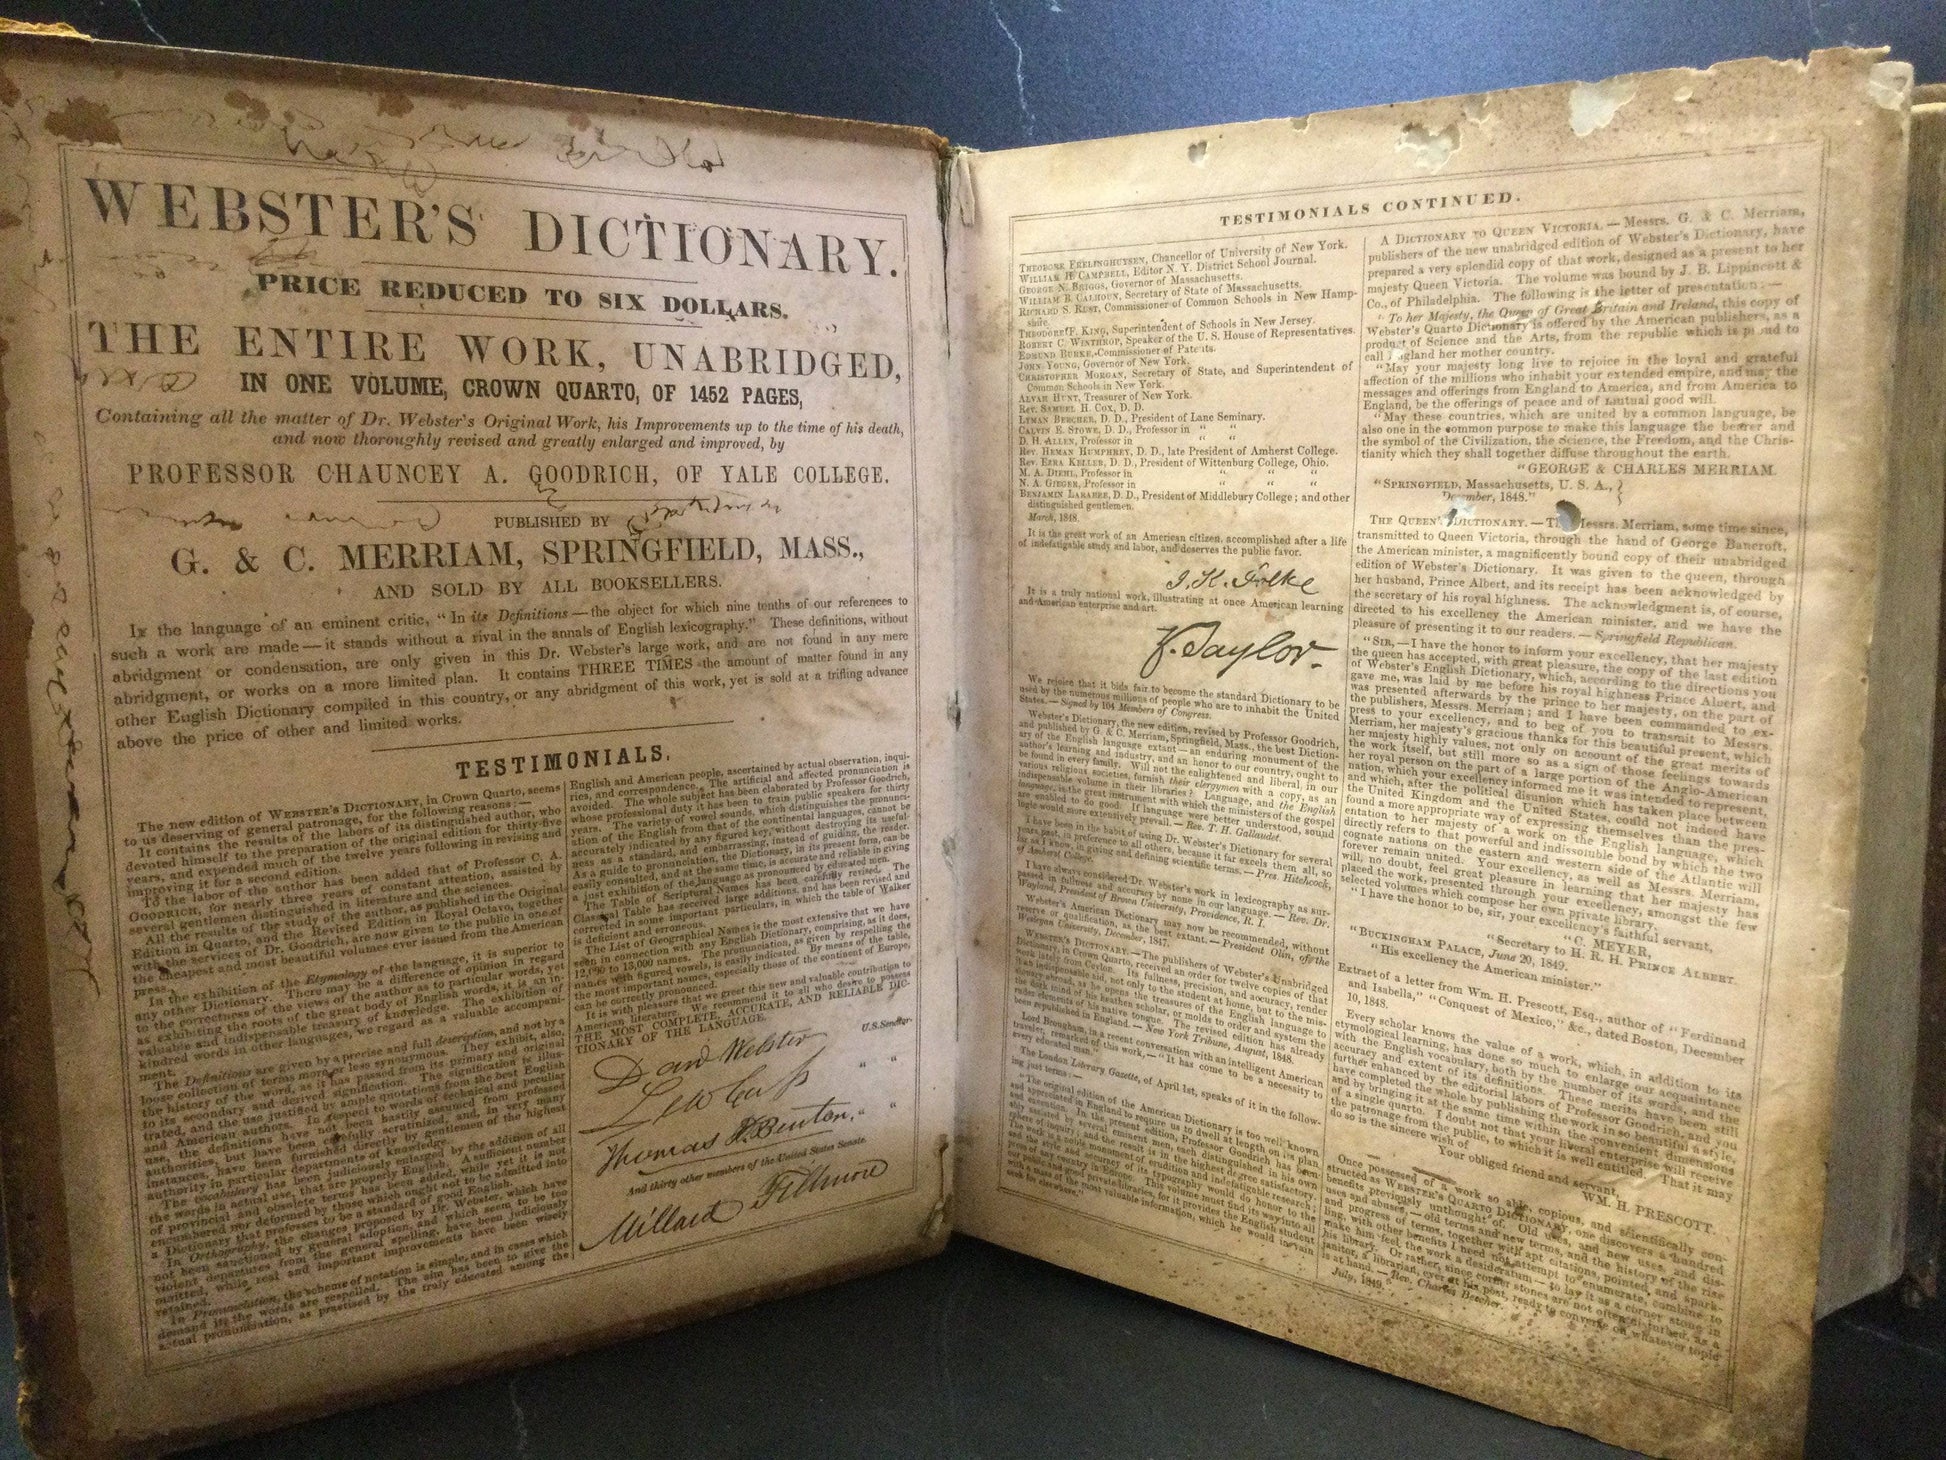 WEBSTER'S DICTIONARY.
PRICE REDUCED TO SIX DOLLARS.
THE ENTIRE WORK, UNABRIDGED,
IN ONE VOLUME, CROWN QUARTO, OF 1452 PAGES,
Containing all the matter of Dr. Webster's Original Work, his Improvements up to the time of his death,
and now thoroughly revised and greatly enlarged and improved, by
PROFESSOR CHAUNCEY A. GOODRICH, OF YALE COLLEGE.
PUBLISHED BY
G. & C. MERRIAM, SPRINGFIELD, MASS.,
AND SOLD BY ALL BOOKSELLERS.
In the language of an eminent critic, "In its Definitions—the object for which nine tenths of our references to
such a work are made—it stands without a rival in the annals of English lexicography." These definitions, without
abridgment or condensation, are only given in this Dr. Webster's large work, and are not found in any mere
abridgment, or works on a more limited plan. It contains THREE TIMES the amount of matter found in any
other English Dictionary compiled in this country, or any abridgment of this work, yet is sold at a trifling advance
above the price of other and limited works.
TESTIMONIALS.
The new edition of WEBSTER'S DICTIONARY, in Crown Quarto, seems
to us deserving of general patronage, for the following reasons:—
It contains the results of the labors of its distinguished author, who
devoted himself to the preparation of the original edition for thirty-five
years, and expended much of the twelve years following in revising and
improving it for a second edition.
To the labor of the author has been added that of Professor C. A.
GOODRICH, for nearly three years of constant attention, assisted by
several gentlemen distinguished in literature and the sciences.
All the results of the study of the author, as published in the Original
Edition in Quarto, and the Revised Edition in Royal Octavo, together
with the services of Dr. Goodrich, are now given to the public in one of
the cheapest and most beautiful volumes ever issued from the American
press.
In the exhibition of the Etymology of the language, it is superior to
any other Dictionary. There may be a difference of opinion in regard
to the correctness of the views of the author as to particular words, yet
as exhibiting the roots of the great body of English words, it is an in-
valuable and indispensable treasury of knowledge. The exhibition of
kindred words in other languages, we regard as a valuable accompani-
ment.
The Definitions are given by a precise and full description, and not by a
loose collection of terms more or less synonymous. They exhibit, also,
the history of the word, as it has passed from its primary and original
to its secondary and derived signification. The signification is illus-
trated, and the use justified by ample quotations from the best English
and American authors. In respect to words of technical and peculiar
use, the definitions have not been hastily assumed from professed
authorities, but have been carefully scrutinized, and, in very many
instances, have been furnished directly by gentlemen of the highest
authority in particular departments of knowledge.
The vocabulary has been judiciously enlarged by the addition of all
the words in actual use, that are properly English. A sufficient number
of provincial and obsolete terms has been added, while yet it is not
encumbered nor deformed by those which ought not to be admitted into
a Dictionary that professes to be a standard of good English.
In Orthography, the changes proposed by Dr. Webster, which have
not been sanctioned by general adoption, and which seem to be too
violent departures from the general spelling, have been judiciously
omitted, while real and important improvements have been wisely
retained.
In Pronunciation, the scheme of notation is simple, and in cases which
demand it, the words are respelled. The aim has been to give the
actual pronunciation, as practised by the truly educated among the
English and American people, ascertained by actual observation, inqui-
ries, and correspondence. The artificial and affected pronunciation is
avoided. The whole subject has been elaborated by Professor Goodrich,
whose professional duty it has been to train public speakers for thirty
years. The variety of vowel sounds, which distinguishes the pronunci-
ation of the English from that of the continental languages, cannot be
accurately indicated by any figured key, without destroying its useful-
ness as a standard, and embarrassing, instead of guiding, the reader.
As a guide to pronunciation, the Dictionary, in its present form, can be
easily consulted, and at the same time, is accurate and reliable in giving
a just exhibition of the language as pronounced by educated men.
The Table of Scriptural Names has been carefully revised. The
Classical Table has received large additions, and has been revised and
corrected in some important particulars, in which the table of Walker
is deficient and erroneous.
The List of Geographical Names is the most extensive that we have
seen in connection with any English Dictionary, comprising, as it does,
12,000 to 13,000 names. The pronunciation, as given by respelling the
names with figured vowels, is easily indicated. By means of the table,
the most important names, especially those of the continent of Europe,
can be correctly pronounced.
It is with pleasure that we greet this new and valuable contribution to
American literature. We recommend it to all who desire to possess
THE MOST COMPLETE, ACCURATE, AND RELIABLE DIC-
TIONARY OF THE LANGUAGE.
Danl Webster U.S. Senator.
Lew Cass " "
Thomas H. Benton, " "
And thirty other members of the United States Senate.
Millard Fillmore
TESTIMONIALS CONTINUED.
THEODORE FRELINGHUYSEN, Chancellor of University of New York.
WILLIAM H. CAMPBELL, Editor N. Y. District School Journal.
GEORGE N. BRIGGS, Governor of Massachusetts.
WILLIAM B. CALHOUN, Secretary of State of Massachusetts.
RICHARD S. RUST, Commissioner of Common Schools in New Hamp-
shire.
THEODORE F. KING, Superintendent of Schools in New Jersey.
ROBERT C. WINTHROP, Speaker of the U. S. House of Representatives.
EDMUND BURKE, Commissioner of Patents.
JOHN YOUNG, Governor of New York.
CHRISTOPHER MORGAN, Secretary of State, and Superintendent of
Common Schools in New York.
ALVAH HUNT, Treasurer of New York.
Rev. SAMUEL H. COX, D. D.
LYMAN BEECHER, D. D., President of Lane Seminary.
CALVIN E. STOWE, D. D., Professor in " "
D. H. ALLEN, Professor in " "
Rev. HEMAN HUMPHREY, D. D., late President of Amherst College.
Rev. EZRA KELLER, D. D., President of Wittenburg College, Ohio.
M. A. DIEHL, Professor in " " "
N. A. GIEGER, Professor in " " "
BENJAMIN LARABEE, D. D., President of Middlebury College; and other
distinguished gentlemen.
March, 1848.
It is the great work of an American citizen, accomplished after a life
of indefatigable study and labor, and deserves the public favor.
J. K. Polke
It is a truly national work, illustrating at once American learning
and American enterprise and art.
Z. Taylor.
We rejoice that it bids fair to become the standard Dictionary to be
used by the numerous millions of people who are to inhabit the United
States.—Signed by 104 Members of Congress.
Webster's Dictionary, the new edition, revised by Professor Goodrich,
and published by G. & C. Merriam, Springfield, Mass., the best Diction-
ary of the English language extant—an enduring monument of the
author's learning and industry, and an honor to our country, ought to
be found in every family. Will not the enlightened and liberal, in our
various religious societies, furnish their clergymen with a copy, as an
indispensable volume in their libraries? Language, and the English
language, is the great instrument with which the ministers of the gospel
are enabled to do good. If language were better understood, sound
logic would more extensively prevail.—Rev. T. H. Gallaudet.
I have been in the habit of using Dr. Webster's Dictionary for several
years past, in preference to all others, because it far excels them all, so
far as I know, in giving and defining scientific terms.—Pres. Hitchcock,
of Amherst College.
I have always considered Dr. Webster's work in lexicography as sur-
passed in fullness and accuracy by none in our language.—Rev. Dr.
Wayland, President of Brown University, Providence, R. I.
Webster's American Dictionary may now be recommended, without
reserve or qualification, as the best extant.—President Olin, of the
Wesleyan University, December, 1847.
WEBSTER'S DICTIONARY.—The publishers of Webster's Unabridged
Dictionary, in Crown Quarto, received an order for twelve copies of that
work lately from Ceylon. Its fullness, precision, and accuracy, render
it an indispensable aid, not only to the student at home, but to the mis-
sionary abroad, as he opens the treasures of the English language to
the dark mind of his heathen scholar, or molds to order and system the
ruder elements of his native tongue. The revised edition has already
been published in England.—New York Tribune, August, 1848.
Lord Brougham, in a recent conversation with an intelligent American
traveler, remarked of this work,—"It has come to be a necessity to
every educated man."
The London Literary Gazette, of April 1st, speaks of it in the follow-
ing just terms:—
"The original edition of the American Dictionary is too well known
and appreciated in England to require us to dwell at length on its plan
and execution. In the present edition, Professor Goodrich, has been
ably assisted by several eminent men, each distinguished in his own
sphere of inquiry; and the result is in the highest degree satisfactory.
The work is a noble monument of erudition and indefatigable research;
and the style and accuracy of its typography would do honor to the
press of any country in Europe. This volume must find its way into all
our public and private libraries, for it provides the English student
with a mass of the most valuable information, which he would in vain
seek for elsewhere."
A DICTIONARY TO QUEEN VICTORIA.—Messrs. G. & C. Merriam,
publishers of the new unabridged edition of Webster's Dictionary, have
prepared a very splendid copy of that work, designed as a present to her
majesty Queen Victoria. The volume was bound by J. B. Lippincott &
Co., of Philadelphia. The following is the letter of presentation:—
"To her Majesty, the Queen of Great Britain and Ireland, this copy of
Webster's Quarto Dictionary is offered by the American publishers, as a
product of Science and the Arts, from the republic which is proud to
call England her mother country.
"May your majesty long live to rejoice in the loyal and grateful
affection of the millions who inhabit your extended empire, and may the
messages and offerings from England to America, and from America to
England, be the offerings of peace and of mutual good will.
"May these countries, which are united by a common language, be
also one in the common purpose to make this language the bearer and
the symbol of the Civilization, the Science, the Freedom, and the Chris-
tianity which they shall together diffuse throughout the earth.
"GEORGE & CHARLES MERRIAM.
"SPRINGFIELD, Massachusetts, U. S. A.,
December, 1848."
THE QUEEN'S DICTIONARY.—The Messrs. Merriam, some time since,
transmitted to Queen Victoria, through the hand of George Bancroft,
the American minister, a magnificently bound copy of their unabridged
edition of Webster's Dictionary. It was given to the queen, through
her husband, Prince Albert, and its receipt has been acknowledged by
the secretary of his royal highness. The acknowledgment is, of course,
directed to his excellency the American minister, and we have the
pleasure of presenting it to our readers.—Springfield Republican.
"SIR,—I have the honor to inform your excellency, that her majesty
the queen has accepted, with great pleasure, the copy of the last edition
of Webster's English Dictionary, which, according to the directions you
gave me, was laid by me before his royal highness Prince Albert, and
was presented afterwards by the prince to her majesty, on the part of
the publishers, Messrs. Merriam; and I have been commanded to ex-
press to your excellency, and to beg of you to transmit to Messrs.
Merriam, her majesty's gracious thanks for this beautiful present, which
her majesty highly values, not only on account of the great merits of
the work itself, but still more so as a sign of those feelings towards
her royal person on the part of a large portion of the Anglo-American
nation, which your excellency informed me it was intended to represent,
and which, after the political disunion which has taken place between
the United Kingdom and the United States, could not indeed have
found a more appropriate way of expressing themselves than the pres-
entation to her majesty of a work on the English language, which
directly refers to that powerful and indissoluble bond by which the two
cognate nations on the eastern and western side of the Atlantic will
forever remain united. Your excellency, as well as Messrs. Merriam,
will, no doubt, feel great pleasure in learning that her majesty has
placed the work, presented through your excellency, amongst the few
selected volumes which compose her own private library.
"I have the honor to be, sir, your excellency's faithful servant,
"C. MEYER,
"Secretary to H. R. H. PRINCE ALBERT.
"BUCKINGHAM PALACE, June 20, 1849.
"His excellency the American minister."
Extract of a letter from Wm. H. Prescott, Esq., author of "Ferdinand
and Isabella," "Conquest of Mexico," &c., dated Boston, December
10, 1848.
Every scholar knows the value of a work, which, in addition to its
etymological learning, has done so much to enlarge our acquaintance
with the English vocabulary, both by the number of its words, and the
accuracy and extent of its definitions. These merits have been still
further enhanced by the editorial labors of Professor Goodrich, and you
have completed the whole by publishing the work in so beautiful a style,
and by bringing it at the same time within the convenient dimensions
of a single quarto. I doubt not that your liberal enterprise will receive
the patronage from the public, to which it is well entitled. That it may
do so is the sincere wish of
Your obliged friend and servant,
WM. H. PRESCOTT.
Once possessed of a work so able, copious, and scientifically con-
structed as WEBSTER'S QUARTO DICTIONARY, one discovers a hundred
benefits previously unthought of. Old uses, and new uses, and dis-
uses and abuses,—old terms and new terms, and the history of the rise
and progress of terms, together with apt citations, pointed, and spark-
ling, with other benefits I need not attempt to enumerate, combine to
make him feel, the work a desideratum—to lay it as a corner stone in
his library. Or rather, since corner stones are not often disturbed, as a
janitor, a librarian, ever at his post, ready to converse on whatever topic
is at hand.—Rev. Charles Beecher.
July, 1849.